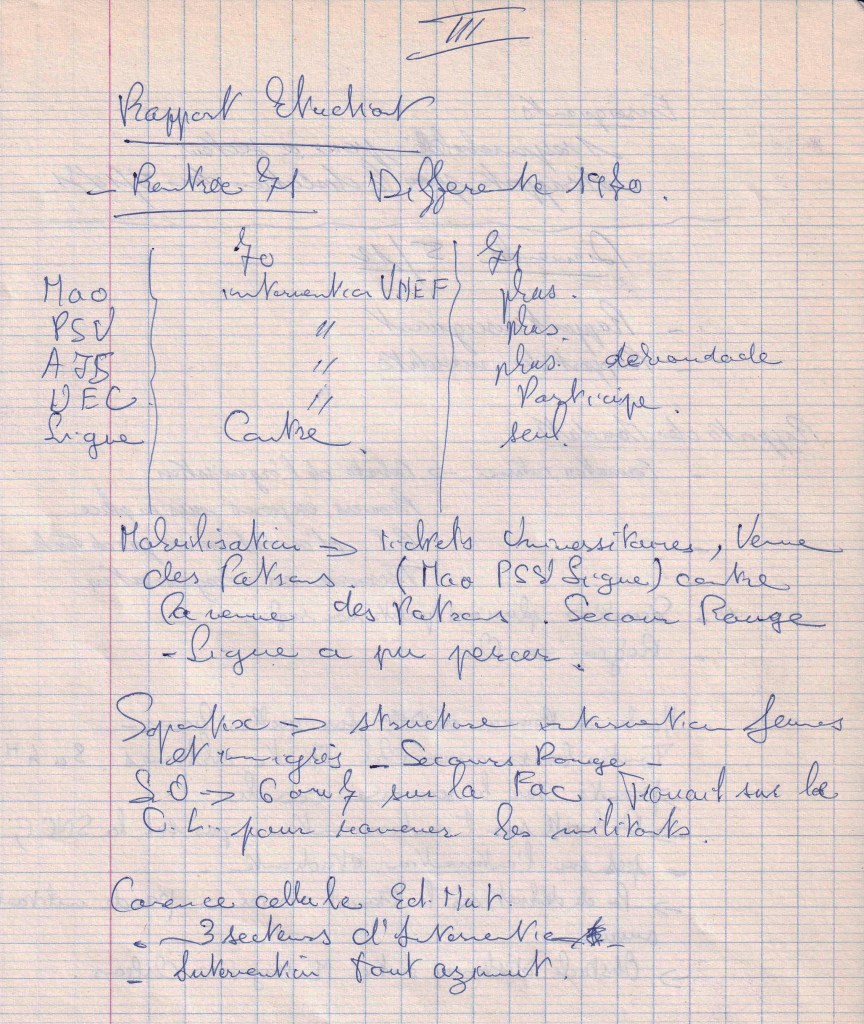 III
Rapport Etudiant
- Rentrée 71 Differente 1970.
70 71
Mao intervention UNEF plus.
PSU " plus.
AJS " plus. débandade
UEC " Participe.
Ligue Contre. seul.
Mobilisation -> tickets Universitaires, Venue
des Patrons. (Mao PSU Ligue) contre
la venue des Patrons. Secour Rouge
- Ligue a pu percer.
-> structure intervention Jeunes
et immigrés - Secours Rouge -
S.O -> 6 ou 7 sur la Fac, Travail sur la
C.L. pour ramener les militants.
Carence cellule Ed. Mat.
- 3 secteurs d'Intervention
- Intervention Tout azimut.